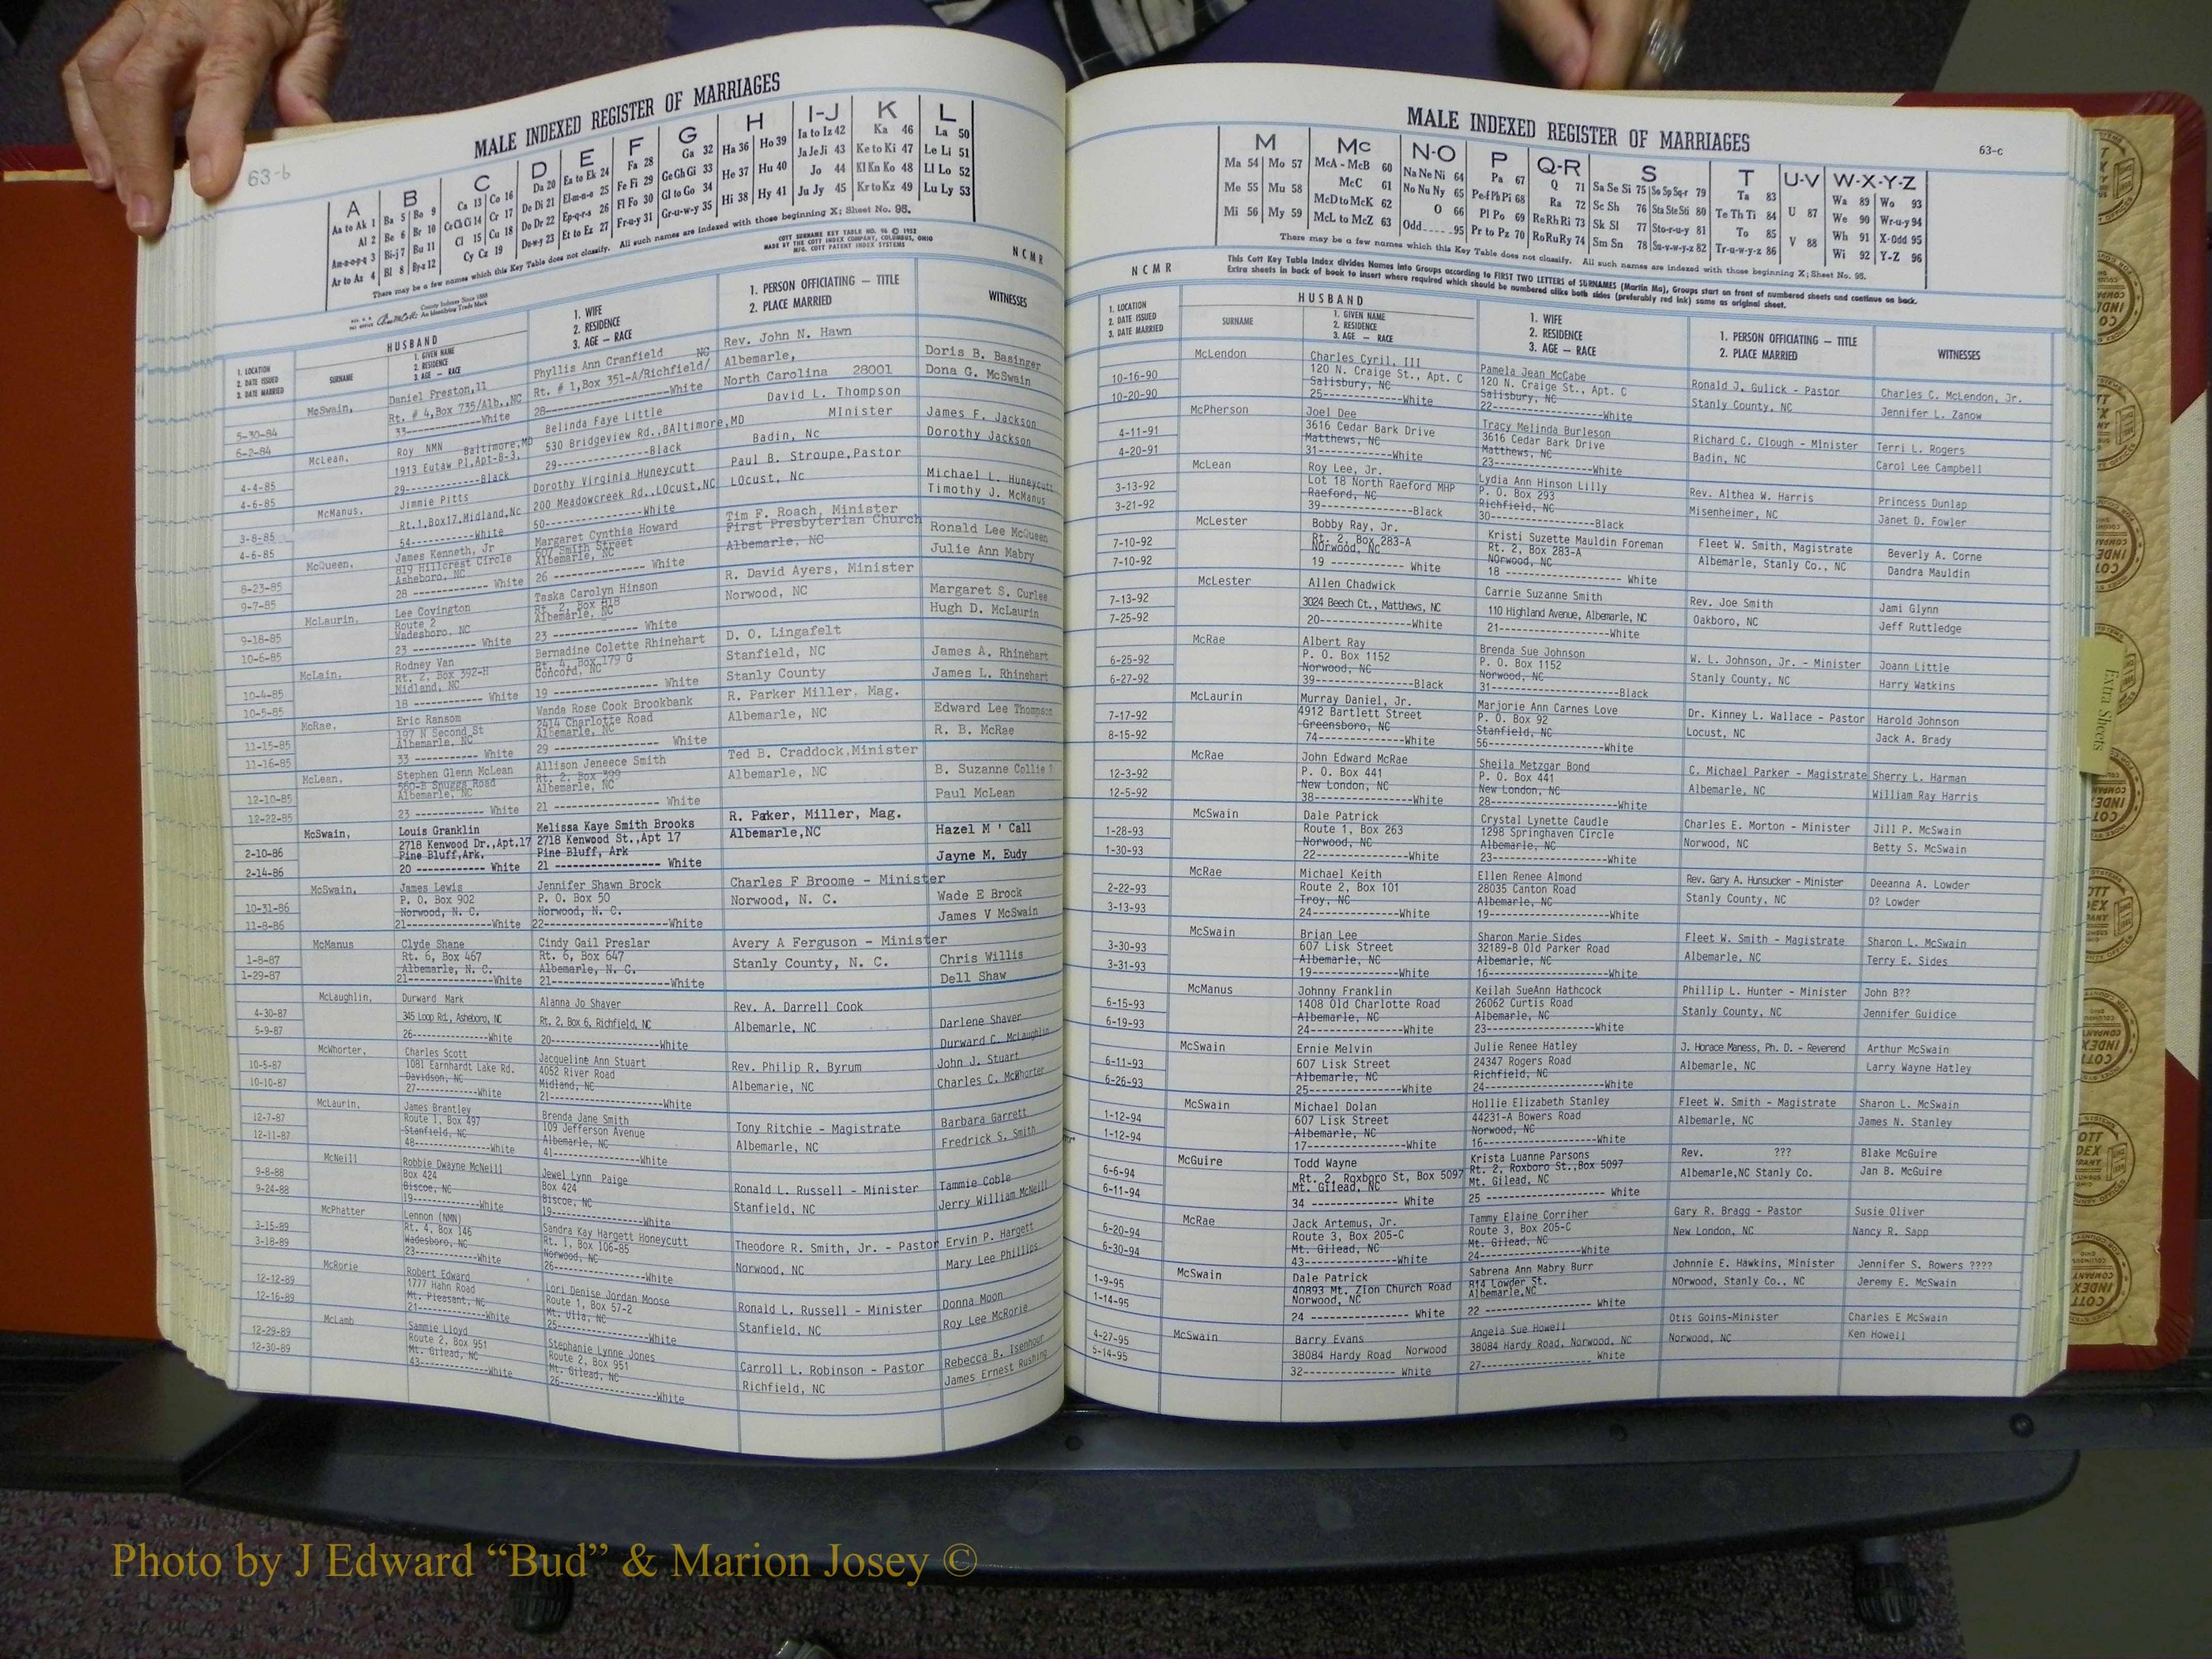 63-b
MALE INDEXED REGISTER OF MARRIAGES
A B C D E F G H I-J K L
Aa to Ak 1 Ba 5 Bo 9 Ca 13 Co 16 Da 20 Ea to Ek 24 Fa 28 Ga 32 Ha 36 Ho 39 Ia to Iz 42 Ka 46 La 50
Al 2 Be 6 Br 10 Ce Ch Ci 14 Cr 17 De Di 21 El-m-n-o 25 Fe Fi 29 Ge Gh Gi 33 He 37 Hu 40 Ja Je Ji 43 Ke to Ki 47 Le Li 51
Am-n-o-p-q 3 Bi-j 7 Bu 11 Cl 15 Cu 18 Do Dr 22 Ep-q-r-s 26 Fl Fo 30 Gl to Go 34 Hi 38 Hy 41 Jo 44 Kl Kn Ko 48 Ll Lo 52
Ar to Az 4 Bl 8 By-z 12 Cy Cz 19 Dw-y 23 Et to Ez 27 Fr-u-y 31 Gr-u-w-y 35 Ju Jy 45 Kr to Kz 49 Lu Ly 53
There may be a few names which this Key Table does not classify. All such names are indexed with those beginning X; Sheet No. 95.
COTT SURNAME KEY TABLE NO. 96 © 1952
MADE BY THE COTT INDEX COMPANY, COLUMBUS, OHIO
MFG. COTT PATENT INDEX SYSTEMS
County Indexes Since 1888
An Identifying Trade Mark
NCMR
1. LOCATION
2. DATE ISSUED
3. DATE MARRIED
HUSBAND
SURNAME
1. GIVEN NAME
2. RESIDENCE
3. AGE — RACE
1. WIFE
2. RESIDENCE
3. AGE — RACE
1. PERSON OFFICIATING — TITLE
2. PLACE MARRIED
WITNESSES
McSwain, Daniel Preston,11 Phyllis Ann Cranfield NC Rev. John N. Hawn Doris B. Basinger
5-30-84 Rt. # 4,Box 735/Alb.,NC Rt. # 1,Box 351-A/Richfield/ Albemarle, Dona G. McSwain
6-2-84 33-------------White 28-------------------White North Carolina 28001
McLean, Roy NMN Baltimore,MD Belinda Faye Little David L. Thompson James F. Jackson
4-4-85 1913 Eutaw Pl,Apt-B-3, 530 Bridgeview Rd.,BAltimore,MD MInister Dorothy Jackson
4-6-85 29-------------Black 29---------------Black Badin, Nc
McManus, Jimmie Pitts Dorothy Virginia Huneycutt Paul B. Stroupe,Pastor Michael L. Huneycutt
3-8-85 Rt.1,Box17,Midland,Nc 200 Meadowcreek Rd.,LOcust,NC LOcust, Nc Timothy J. McManus
4-6-85 54-------------White 50---------------White
McQueen, James Kenneth, Jr Margaret Cynthia Howard Tim F. Roach, Minister Ronald Lee McQueen
8-23-85 819 Hillcrest Circle 607 Smith Street First Presbyterian Church Julie Ann Mabry
9-7-85 Asheboro, NC Albemarle, NC Albemarle, NC
28 ----------- White 26 -------------- White
McLaurin, Lee Covington Taska Carolyn Hinson R. David Ayers, Minister Margaret S. Curlee
9-18-85 Route 2 Rt. 2, Box 818 Norwood, NC Hugh D. McLaurin
10-6-85 Wadesboro, NC Albemarle, NC
23 ----------- White 23 ------------ White
McLain, Rodney Van Bernadine Colette Rhinehart D. O. Lingafelt James A. Rhinehart
10-4-85 Rt. 2, Box 392-H Rt. 4, Box 179 G Stanfield, NC James L. Rhinehart
10-5-85 Midland, NC Concord, NC Stanly County
18 ------------- White 19 ---------------- White
McRae, Eric Ransom Vanda Rose Cook Brookbank R. Parker Miller, Mag. Edward Lee Thompson
11-15-85 197 N Second St 2414 Charlotte Road Albemarle, NC R. B. McRae
11-16-85 Albemarle, NC Albemarle, NC
33 ----------- White 29 ----------------- White
McLean, Stephen Glenn McLean Allison Jeneece Smith Ted B. Craddock,Minister B. Suzanne Collie
12-10-85 560-B Snuggs Road Rt. 2, Box 399 Albemarle, NC Paul McLean
12-22-85 Albemarle, NC Albemarle, NC
23 ----------- White 21 --------------- White
McSwain, Louis Granklin Melissa Kaye Smith Brooks R. Paker, Miller, Mag. Hazel M ' Call
2-10-86 2718 Kenwood Dr.,Apt.17 2718 Kenwood St.,Apt 17 Albemarle,NC Jayne M. Eudy
2-14-86 Pine Bluff,Ark. Pine Bluff, Ark
20 ------------ White 21 ------------------ White
McSwain, James Lewis Jennifer Shawn Brock Charles F Broome - Minister Wade E Brock
10-31-86 P. O. Box 902 P. O. Box 50 Norwood, N. C. James V McSwain
11-8-86 Norwood, N. C. Norwood, N. C.
21-------------White 22------------------White
McManus Clyde Shane Cindy Gail Preslar Avery A Ferguson - Minister Chris Willis
1-8-87 Rt. 6, Box 467 Rt. 6, Box 647 Stanly County, N. C. Dell Shaw
1-29-87 Albemarle, N. C. Albemarle, N. C.
21-------------White 21------------------White
McLaughlin, Durward Mark Alanna Jo Shaver Rev. A. Darrell Cook Darlene Shaver
4-30-87 345 Loop Rd., Asheboro, NC Rt. 2, Box 6, Richfield, NC Albemarle, NC Durward C. McLaughlin
5-9-87 26-------------White 20-----------------White
McWhorter, Charles Scott Jacqueline Ann Stuart Rev. Philip R. Byrum John J. Stuart
10-5-87 1081 Earnhardt Lake Rd. 4052 River Road Albemarle, NC Charles C. McWhorter
10-10-87 Davidson, NC Midland, NC
27-------------White 21-----------------White
McLaurin, James Brantley Brenda Jane Smith Tony Ritchie - Magistrate Barbara Garrett
12-7-87 Route 1, Box 497 109 Jefferson Avenue Albemarle, NC Fredrick S. Smith
12-11-87 Stanfield, NC Albemarle, NC
48-------------White 41-----------------White
McNeill Robbie Dwayne McNeill Jewel Lynn Paige Ronald L. Russell - Minister Tammie Coble
9-8-88 Box 424 Box 424 Stanfield, NC Jerry William McNeill
9-24-88 Biscoe, NC Biscoe, NC
19-------------White 19-----------------White
McPhatter Lennon (NMN) Sandra Kay Hargett Honeycutt Theodore R. Smith, Jr. - Pastor Ervin P. Hargett
3-15-89 Rt. 4, Box 146 Rt. 1, Box 106-85 Norwood, NC Mary Lee Phillips
3-18-89 Wadesboro, NC Norwood, NC
23-------------White 26-----------------White
McRorie Robert Edward Lori Denise Jordan Moose Ronald L. Russell - Minister Donna Moon
12-12-89 1777 Hahn Road Route 1, Box 57-2 Stanfield, NC Roy Lee McRorie
12-16-89 Mt. Pleasant, NC Mt. Ulla, NC
21-------------White 25-----------------White
McLamb Sammie Lloyd Stephanie Lynne Jones Carroll L. Robinson - Pastor Rebecca B. Isenhour
12-29-89 Route 2, Box 951 Route 2, Box 951 Richfield, NC James Ernest Rushing
12-30-89 Mt. Gilead, NC Mt. Gilead, NC
43-------------White 26-----------------White
63-c
MALE INDEXED REGISTER OF MARRIAGES
M Mc N-O P Q-R S T U-V W-X-Y-Z
Ma 54 Mo 57 McA - McB 60 Na Ne Ni 64 Pa 67 Q 71 Sa Se Si 75 So Sp Sq-r 79 Ta 83 U 87 Wa 89 Wo 93
Me 55 Mu 58 McC 61 No Nu Ny 65 Pe-f Ph Pi 68 Ra 72 Sc Sh 76 Sta Ste Sti 80 Te Th Ti 84 V 88 We 90 Wr-u-y 94
Mi 56 My 59 McD to McK 62 O 66 Pl Po 69 Re Rh Ri 73 Sk Sl 77 Sto-r-u-y 81 To 85 Wh 91 X-Odd 95
McL to McZ 63 Odd 95 Pr to Pz 70 Ro Ru Ry 74 Sm Sn 78 Su-v-w-y-z 82 Tr-u-w-y-z 86 Wi 92 Y-Z 96
There may be a few names which this Key Table does not classify. All such names are indexed with those beginning X; Sheet No. 95.
NCMR
This Cott Key Table Index divides Names into Groups according to FIRST TWO LETTERS of SURNAMES (Martin Ma), Groups start on front of numbered sheets and continue on back.
Extra sheets in back of book to insert where required which should be numbered alike both sides (preferably red ink) same as original sheet.
1. LOCATION
2. DATE ISSUED
3. DATE MARRIED
HUSBAND
SURNAME
1. GIVEN NAME
2. RESIDENCE
3. AGE — RACE
1. WIFE
2. RESIDENCE
3. AGE — RACE
1. PERSON OFFICIATING — TITLE
2. PLACE MARRIED
WITNESSES
McLendon Charles Cyril, III Pamela Jean McCabe Ronald J. Gulick - Pastor Charles C. McLendon, Jr.
10-16-90 120 N. Craige St., Apt. C 120 N. Craige St., Apt. C Stanly County, NC Jennifer L. Zanow
10-20-90 Salisbury, NC Salisbury, NC
25-------------White 22-----------------White
McPherson Joel Dee Tracy Melinda Burleson Richard C. Clough - Minister Terri L. Rogers
4-11-91 3616 Cedar Bark Drive 3616 Cedar Bark Drive Badin, NC Carol Lee Campbell
4-20-91 Matthews, NC Matthews, NC
31-------------White 23-----------------White
McLean Roy Lee, Jr. Lydia Ann Hinson Lilly Rev. Althea W. Harris Princess Dunlap
3-13-92 Lot 18 North Raeford MHP P. O. Box 293 Misenheimer, NC Janet D. Fowler
3-21-92 Raeford, NC Richfield, NC
39-------------Black 30-----------------Black
McLester Bobby Ray, Jr. Kristi Suzette Mauldin Foreman Fleet W. Smith, Magistrate Beverly A. Corne
7-10-92 Rt. 2, Box 283-A Rt. 2, Box 283-A Albemarle, Stanly Co., NC Dandra Mauldin
7-10-92 Norwood, NC Norwood, NC
19 ---------- White 18 ----------------- White
McLester Allen Chadwick Carrie Suzanne Smith Rev. Joe Smith Jami Glynn
7-13-92 3024 Beech Ct., Matthews, NC 110 Highland Avenue, Albemarle, NC Oakboro, NC Jeff Ruttledge
7-25-92 20-------------White 21-----------------White
McRae Albert Ray Brenda Sue Johnson W. L. Johnson, Jr. - Minister Joann Little
6-25-92 P. O. Box 1152 P. O. Box 1152 Stanly County, NC Harry Watkins
6-27-92 Norwood, NC Norwood, NC
39-------------Black 31-----------------Black
McLaurin Murray Daniel, Jr. Marjorie Ann Carnes Love Dr. Kinney L. Wallace - Pastor Harold Johnson
7-17-92 4912 Bartlett Street P. O. Box 92 Locust, NC Jack A. Brady
8-15-92 Greensboro, NC Stanfield, NC
74-------------White 56-----------------White
McRae John Edward McRae Sheila Metzgar Bond C. Michael Parker - Magistrate Sherry L. Harman
12-3-92 P. O. Box 441 P. O. Box 441 Albemarle, NC William Ray Harris
12-5-92 New London, NC New London, NC
38-------------White 28-----------------White
McSwain Dale Patrick Crystal Lynette Caudle Charles E. Morton - Minister Jill P. McSwain
1-28-93 Route 1, Box 263 1298 Springhaven Circle Norwood, NC Betty S. McSwain
1-30-93 Norwood, NC Albemarle, NC
22-------------White 23-----------------White
McRae Michael Keith Ellen Renee Almond Rev. Gary A. Hunsucker - Minister Deeanna A. Lowder
2-22-93 Route 2, Box 101 28035 Canton Road Stanly County, NC D? Lowder
3-13-93 Troy, NC Albemarle, NC
24-------------White 19-----------------White
McSwain Brian Lee Sharon Marie Sides Fleet W. Smith - Magistrate Sharon L. McSwain
3-30-93 607 Lisk Street 32189-B Old Parker Road Albemarle, NC Terry E. Sides
3-31-93 Albemarle, NC Albemarle, NC
19-------------White 16-----------------White
McManus Johnny Franklin Keilah SueAnn Hathcock Phillip L. Hunter - Minister John B??
6-15-93 1408 Old Charlotte Road 26062 Curtis Road Stanly County, NC Jennifer Guidice
6-19-93 Albemarle, NC Albemarle, NC
24-------------White 23-----------------White
McSwain Ernie Melvin Julie Renee Hatley J. Horace Maness, Ph. D. - Reverend Arthur McSwain
6-11-93 607 Lisk Street 24347 Rogers Road Albemarle, NC Larry Wayne Hatley
6-26-93 Albemarle, NC Richfield, NC
25-------------White 24-----------------White
McSwain Michael Dolan Hollie Elizabeth Stanley Fleet W. Smith - Magistrate Sharon L. McSwain
1-12-94 607 Lisk Street 44231-A Bowers Road Albemarle, NC James N. Stanley
1-12-94 Albemarle, NC Norwood, NC
17-------------White 16-----------------White
McGuire Todd Wayne Krista Luanne Parsons Rev. ??? Blake McGuire
6-6-94 Rt. 2, Roxboro St, Box 5097 Rt. 2, Roxboro St.,Box 5097 Albemarle,NC Stanly Co. Jan B. McGuire
6-11-94 Mt. Gilead, NC Mt. Gilead, NC
34 ----------- White 25 ---------------- White
McRae Jack Artemus, Jr. Tammy Elaine Corriher Gary R. Bragg - Pastor Susie Oliver
6-20-94 Route 3, Box 205-C Route 3, Box 205-C New London, NC Nancy R. Sapp
6-30-94 Mt. Gilead, NC Mt. Gilead, NC
43-------------White 24-------------White
McSwain Dale Patrick Sabrena Ann Mabry Burr Johnnie E. Hawkins, Minister Jennifer S. Bowers ????
1-9-95 40893 Mt. Zion Church Road 814 Lowder St. NOrwood, Stanly Co., NC Jeremy E. McSwain
1-14-95 Norwood, NC Albemarle,NC
24 -------------- White 22 -------------- White
McSwain Barry Evans Angela Sue Howell Otis Goins-Minister Charles E McSwain
4-27-95 38084 Hardy Road Norwood 38084 Hardy Road, Norwood, NC Norwood, NC Ken Howell
5-14-95 32------------- White 27-------------- White
Extra Sheets
Photo by J Edward “Bud” & Marion Josey ©